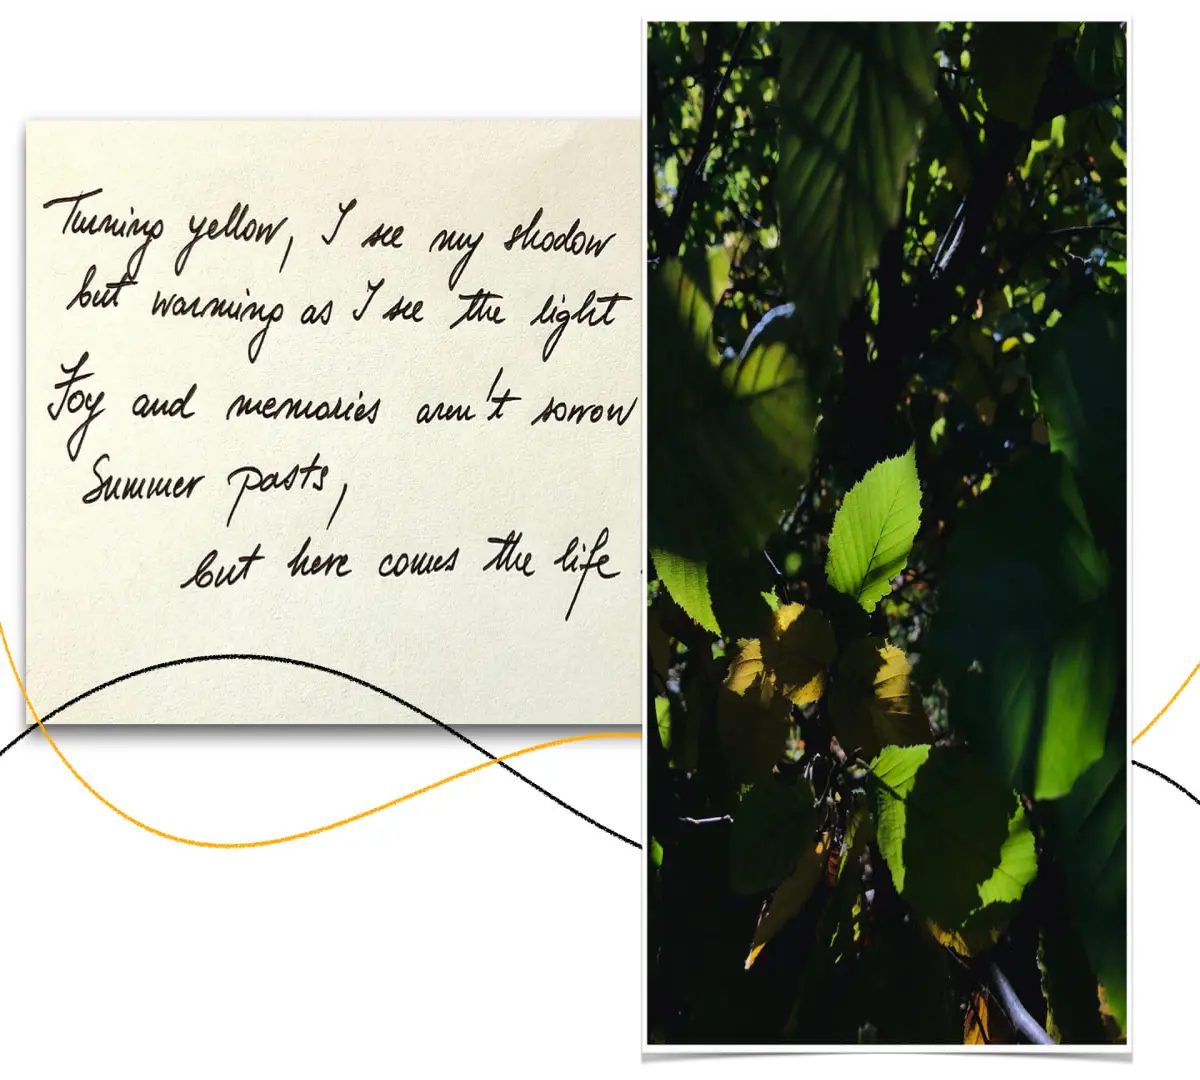 Turning yellow, I see my shadow
but warming as I see the light
Joy and memories aren't sorrow
Summer pasts,
but here comes the life.